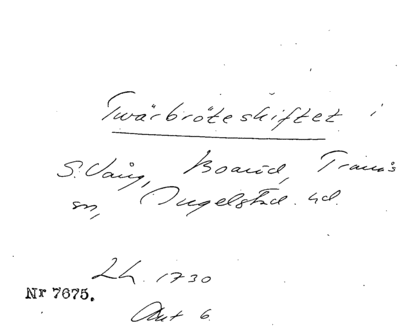 Twärbröteskiftet i
S. Vång, Boarid, Tranås
sn, Ingelstad. hd.
Lh. 1730
Nr 7675.
Ant 6